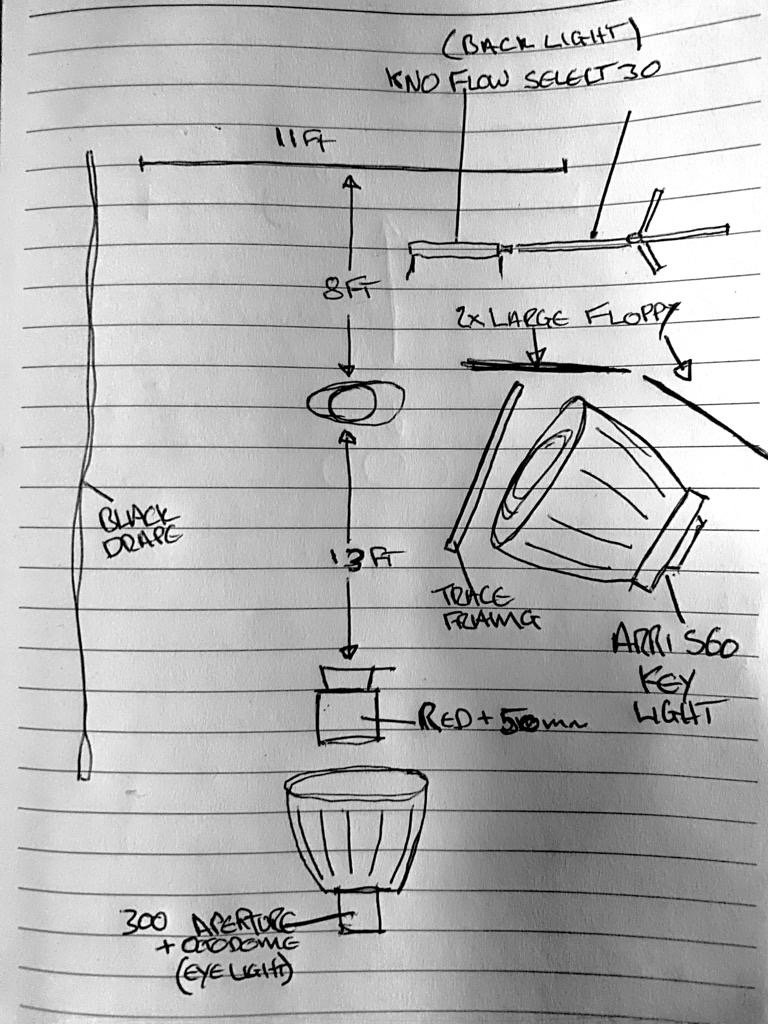 (BACK LIGHT)
KNO FLOW SELECT 30
11Ft
8Ft
2x LARGE FLOPPY
BLACK
DRAPE
13FT
TRACE
FRAMG
ARRI S60
KEY
LIGHT
RED + 50mm
300 APERTURE
+ OCTODOME
(EYE LIGHT)